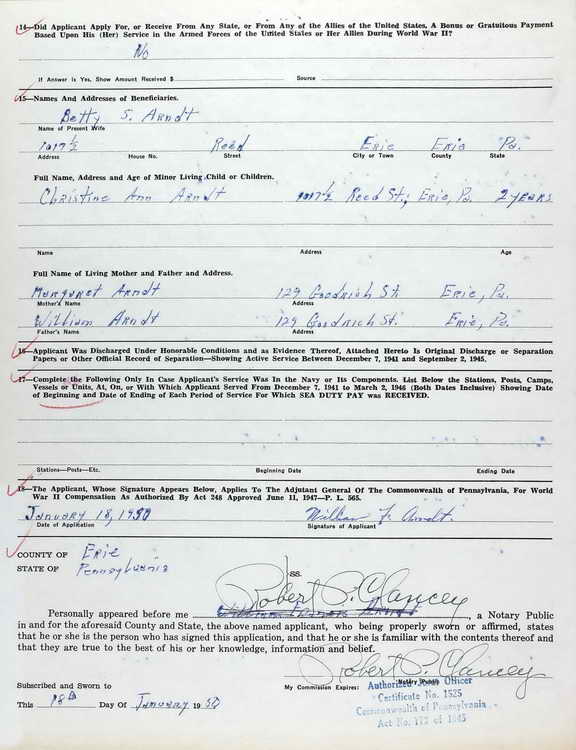 14—Did Applicant Apply For, or Receive From Any State, or From Any of the Allies of the United States, A Bonus or Gratuitous Payment
Based Upon His (Her) Service in the Armed Forces of the United States or Her Allies During World War II?
No
If Answer is Yes, Show Amount Received $ Source
15—Names And Addresses of Beneficiaries.
Betty S. Arndt
Name of Present Wife
1017½ Reed Erie Erie Pa.
Address House No. Street City or Town County State
Full Name, Address and Age of Minor Living Child or Children.
Christine Ann Arndt 1017½ Reed St., Erie, Pa. 2 years
Name Address Age
Full Name of Living Mother and Father and Address.
Margaret Arndt 129 Goodrich St. Erie, Pa.
Mother's Name Address
William Arndt 129 Goodrich St. Erie, Pa.
Father's Name Address
16—Applicant Was Discharged Under Honorable Conditions and as Evidence Thereof, Attached Hereto Is Original Discharge or Separation
Papers or Other Official Record of Separation—Showing Active Service Between December 7, 1941 and September 2, 1945.
17—Complete the Following Only In Case Applicant's Service Was In the Navy or Its Components. List Below the Stations, Posts, Camps,
Vessels or Units, At, On, or With Which Applicant Served From December 7, 1941 to March 2, 1946 (Both Dates Inclusive) Showing Date
of Beginning and Date of Ending of Each Period of Service For Which SEA DUTY PAY was RECEIVED.
Stations—Posts—Etc. Beginning Date Ending Date
18—The Applicant, Whose Signature Appears Below, Applies To The Adjutant General Of The Commonwealth of Pennsylvania, For World
War II Compensation As Authorized By Act 248 Approved June 11, 1947—P. L. 565.
January 18, 1950 William F. Arndt.
Date of Application Signature of Applicant
COUNTY OF Erie
STATE OF Pennsylvania
ss.
Robert P. Clancey
Personally appeared before me William Arndt, a Notary Public
in and for the aforesaid County and State, the above named applicant, who being properly sworn or affirmed, states
that he or she is the person who has signed this application, and that he or she is familiar with the contents thereof and
that they are true to the best of his or her knowledge, information and belief.
Robert P. Clancey
Subscribed and Sworn to My Commission Expires: Notary Public
Authorized Officer
Certificate No. 1525
This 18th Day Of January 1950
Commonwealth of Pennsylvania
Act No. 172 of 1945